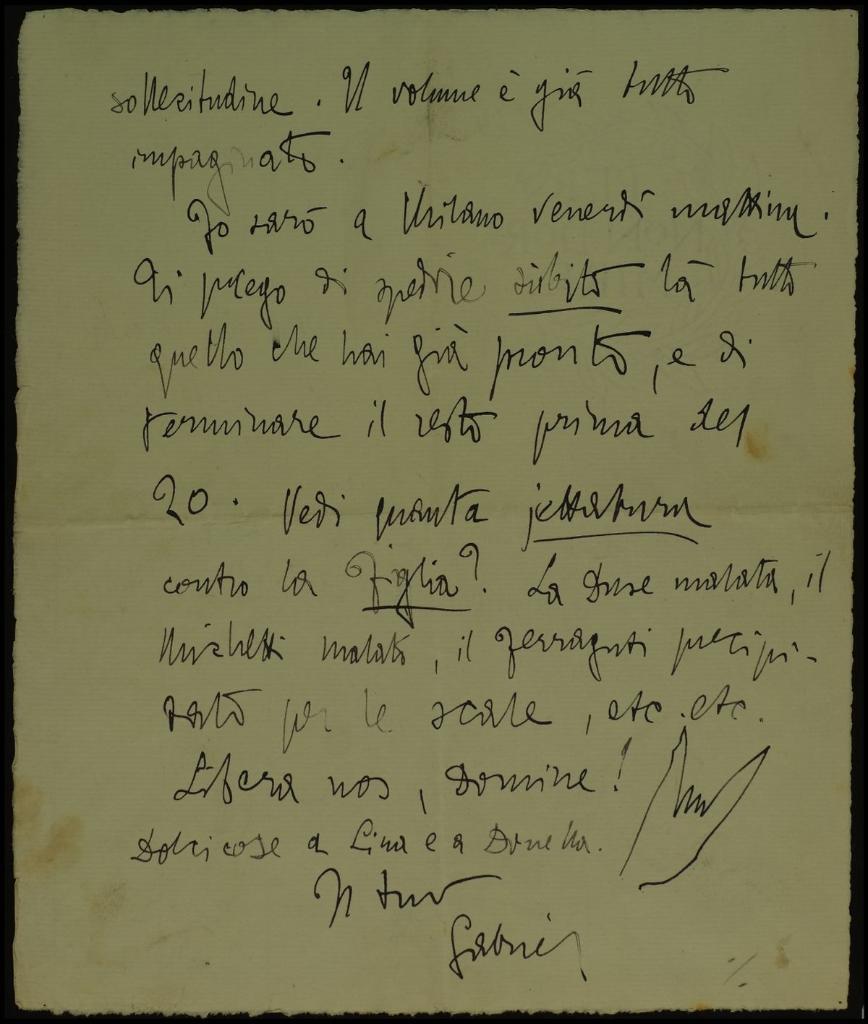 sollecitudine. Il volume è già tutto
impaginato.
Io sarò a Milano venerdì mattina.
Ti prego di spedire sùbito là tutto
quello che hai già pronto, e di
terminare il resto prima del
20. Vedi quanta jettatura
contro la Figlia? La Duse malata, il
Michetti malato, il Ferraguti precipi-
tato per le scale, etc. etc.
Libera nos, Domine!
Dolci cose a Lina e a Donella.
Il tuo
Gabriel